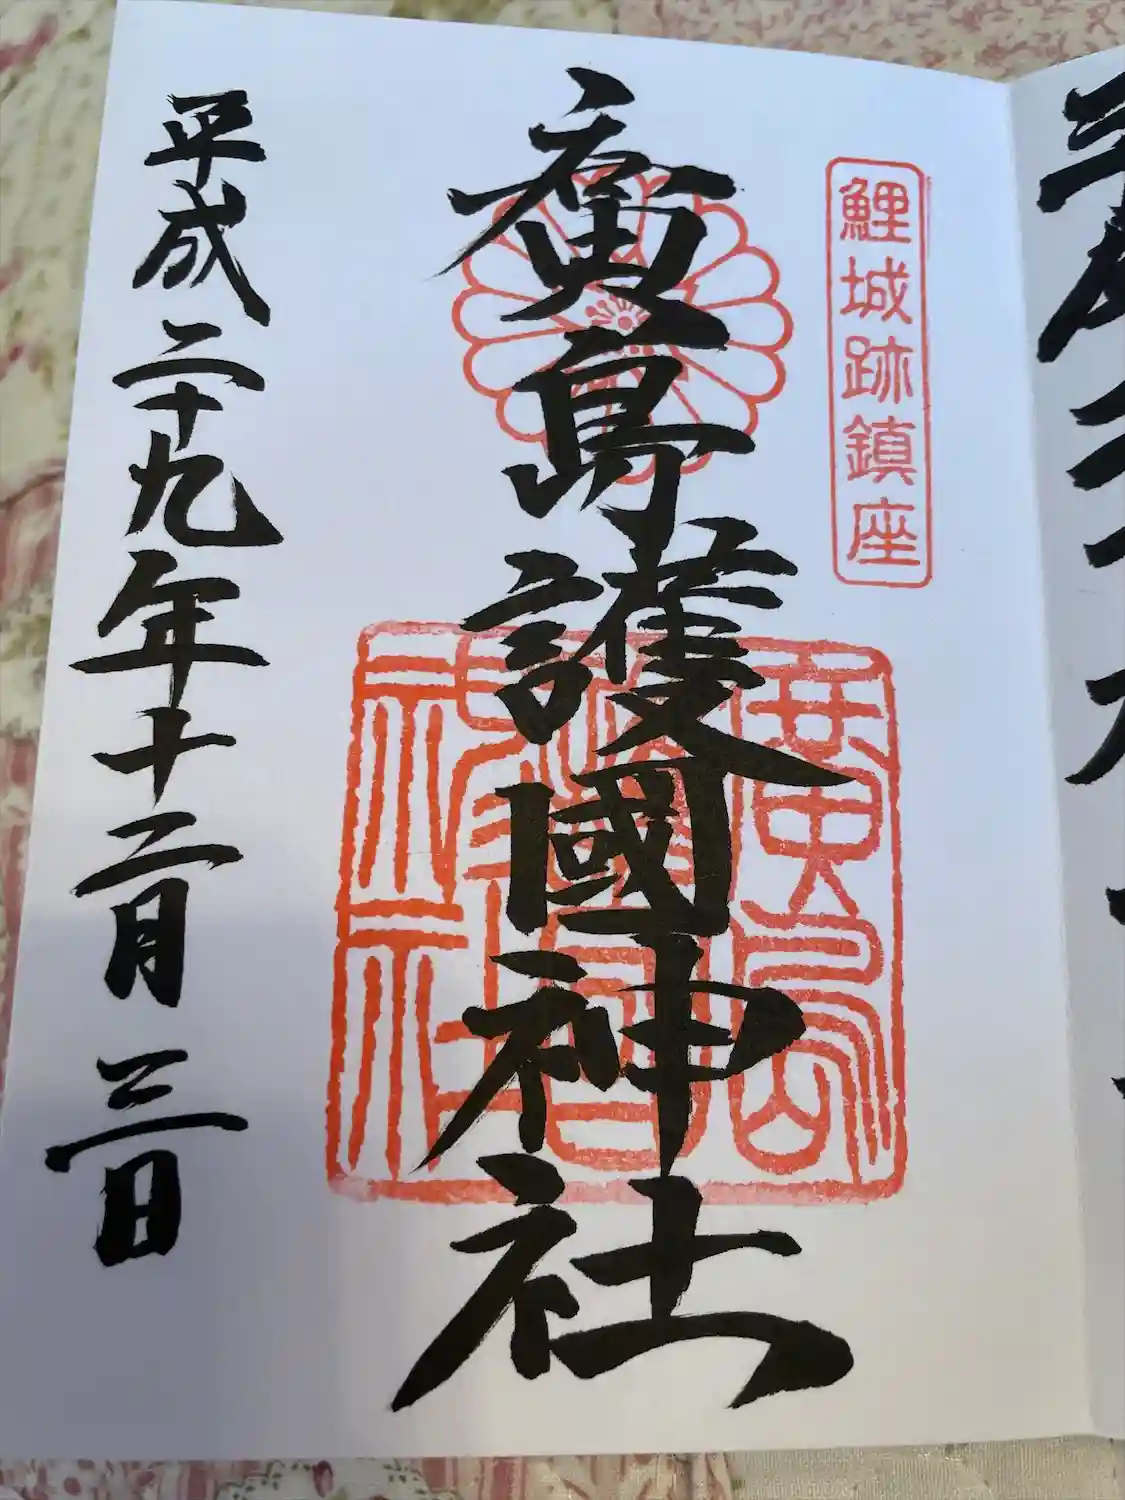 鯉城跡鎮座
廣島護國神社
廣島護國神社
平成二十九年十二月三日